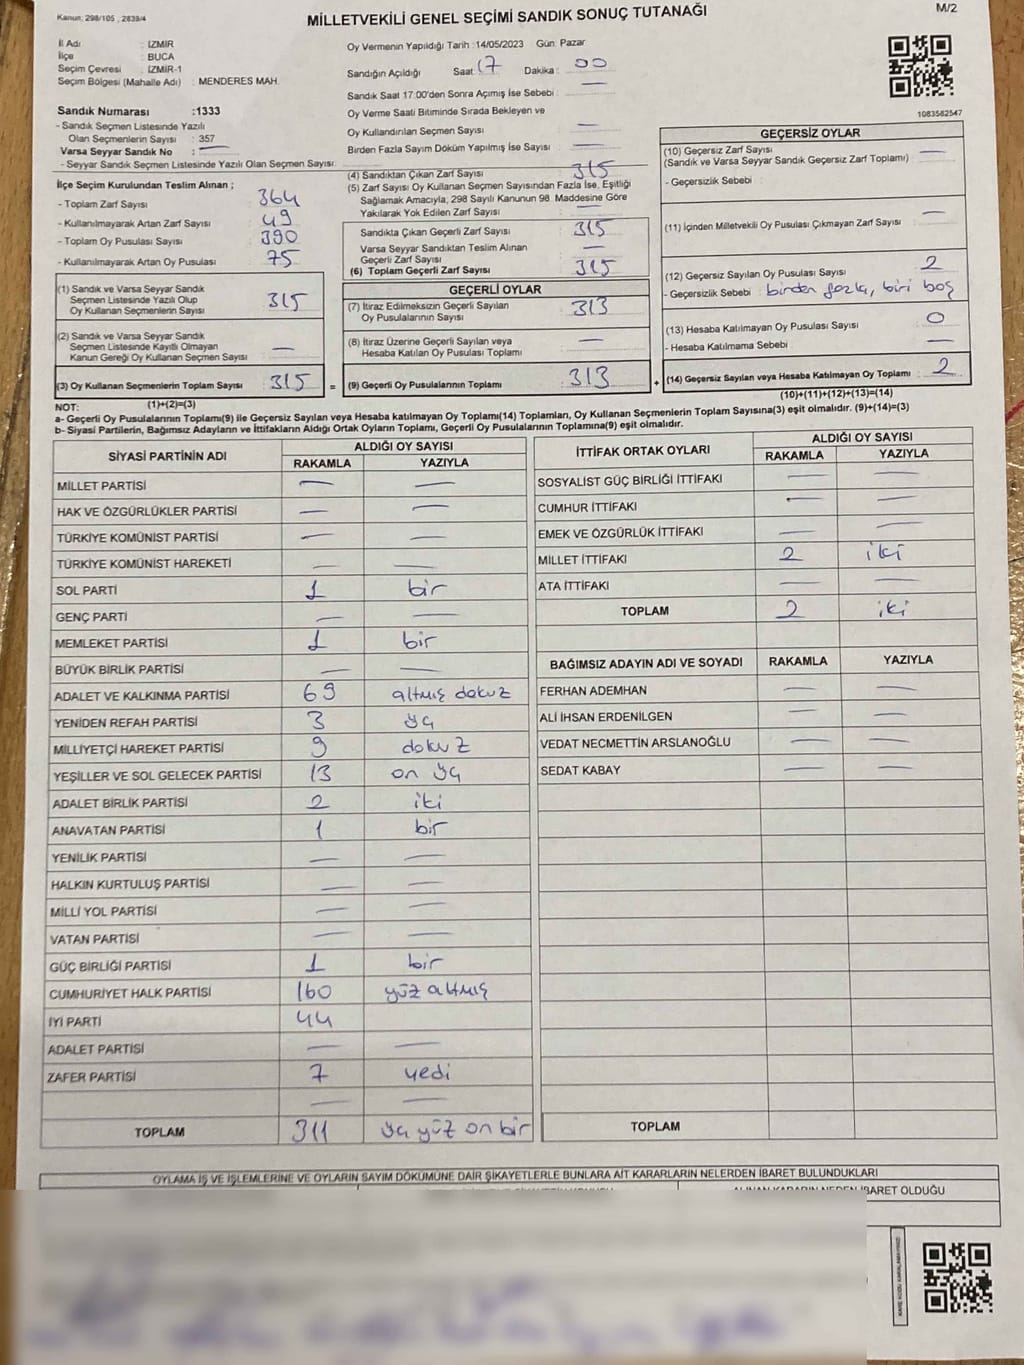 Kanun; 298/105 , 2839/4
MİLLETVEKİLİ GENEL SEÇİMİ SANDIK SONUÇ TUTANAĞI
M/2
İl Adı : İZMİR
İlçe : BUCA
Seçim Çevresi : İZMİR-1
Seçim Bölgesi (Mahalle Adı) : MENDERES MAH.
Sandık Numarası :1333
- Sandık Seçmen Listesinde Yazılı
Olan Seçmenlerin Sayısı : 357
Varsa Seyyar Sandık No : —
- Seyyar Sandık Seçmen Listesinde Yazılı Olan Seçmen Sayısı:
İlçe Seçim Kurulundan Teslim Alınan ;
- Toplam Zarf Sayısı : 364
- Kullanılmayarak Artan Zarf Sayısı : 49
- Toplam Oy Pusulası Sayısı : 390
- Kullanılmayarak Artan Oy Pusulası : 75
(1) Sandık ve Varsa Seyyar Sandık
Seçmen Listesinde Yazılı Olup
Oy Kullanan Seçmenlerin Sayısı : 315
(2) Sandık ve Varsa Seyyar Sandık
Seçmen Listesinde Kayıtlı Olmayan
Kanun Gereği Oy Kullanan Seçmen Sayısı : —
(3) Oy Kullanan Seçmenlerin Toplam Sayısı : 315 =
(1)+(2)=(3)
Oy Vermenin Yapıldığı Tarih :14/05/2023 Gün: Pazar
Sandığın Açıldığı Saat : 17 Dakika : 00
Sandık Saat 17:00'den Sonra Açımış İse Sebebi : —
Oy Verme Saati Bitiminde Sırada Bekleyen ve
Oy Kullandırılan Seçmen Sayısı : —
Birden Fazla Sayım Döküm Yapılmış İse Sayısı : —
(4) Sandıktan Çıkan Zarf Sayısı : 315
(5) Zarf Sayısı Oy Kullanan Seçmen Sayısından Fazla İse, Eşitliği
Sağlamak Amacıyla, 298 Sayılı Kanunun 98. Maddesine Göre
Yakılarak Yok Edilen Zarf Sayısı : —
Sandıkta Çıkan Geçerli Zarf Sayısı : 315
Varsa Seyyar Sandıktan Teslim Alınan
Geçerli Zarf Sayısı : —
(6) Toplam Geçerli Zarf Sayısı : 315
GEÇERLİ OYLAR
(7) İtiraz Edilmeksizin Geçerli Sayılan
Oy Pusulalarının Sayısı : 313
(8) İtiraz Üzerine Geçerli Sayılan veya
Hesaba Katılan Oy Pusulası Toplamı : —
(9) Geçerli Oy Pusulalarının Toplamı : 313 +
1083582547
GEÇERSİZ OYLAR
(10) Geçersiz Zarf Sayısı : —
(Sandık ve Varsa Seyyar Sandık Geçersiz Zarf Toplamı)
- Geçersizlik Sebebi :
(11) İçinden Milletvekili Oy Pusulası Çıkmayan Zarf Sayısı : —
(12) Geçersiz Sayılan Oy Pusulası Sayısı : 2
- Geçersizlik Sebebi : birden fazla, biri boş
(13) Hesaba Katılmayan Oy Pusulası Sayısı : 0
- Hesaba Katılmama Sebebi : —
(14) Geçersiz Sayılan veya Hesaba Katılmayan Oy Toplamı : 2
(10)+(11)+(12)+(13)=(14)
NOT:
a- Geçerli Oy Pusulalarının Toplamı(9) ile Geçersiz Sayılan veya Hesaba katılmayan Oy Toplamı(14) Toplamları, Oy Kullanan Seçmenlerin Toplam Sayısına(3) eşit olmalıdır. (9)+(14)=(3)
b- Siyasi Partilerin, Bağımsız Adayların ve İttifakların Aldığı Ortak Oyların Toplamı, Geçerli Oy Pusulalarının Toplamına(9) eşit olmalıdır.
SİYASİ PARTİNİN ADI ALDIĞI OY SAYISI
RAKAMLA YAZIYLA
MİLLET PARTİSİ — —
HAK VE ÖZGÜRLÜKLER PARTİSİ — —
TÜRKİYE KOMÜNİST PARTİSİ — —
TÜRKİYE KOMÜNİST HAREKETİ — —
SOL PARTİ 1 bir
GENÇ PARTİ — —
MEMLEKET PARTİSİ 1 bir
BÜYÜK BİRLİK PARTİSİ — —
ADALET VE KALKINMA PARTİSİ 69 altmış dokuz
YENİDEN REFAH PARTİSİ 3 üç
MİLLİYETÇİ HAREKET PARTİSİ 9 dokuz
YEŞİLLER VE SOL GELECEK PARTİSİ 13 on üç
ADALET BİRLİK PARTİSİ 2 iki
ANAVATAN PARTİSİ 1 bir
YENİLİK PARTİSİ — —
HALKIN KURTULUŞ PARTİSİ — —
MİLLİ YOL PARTİSİ — —
VATAN PARTİSİ — —
GÜÇ BİRLİĞİ PARTİSİ 1 bir
CUMHURİYET HALK PARTİSİ 160 yüz altmış
İYİ PARTİ 44
ADALET PARTİSİ — —
ZAFER PARTİSİ 7 yedi
— —
TOPLAM 311 üç yüz on bir
İTTİFAK ORTAK OYLARI ALDIĞI OY SAYISI
RAKAMLA YAZIYLA
SOSYALİST GÜÇ BİRLİĞİ İTTİFAKI — —
CUMHUR İTTİFAKI — —
EMEK VE ÖZGÜRLÜK İTTİFAKI — —
MİLLET İTTİFAKI 2 iki
ATA İTTİFAKI — —
TOPLAM 2 iki
BAĞIMSIZ ADAYIN ADI VE SOYADI RAKAMLA YAZIYLA
FERHAN ADEMHAN — —
ALİ İHSAN ERDENİLGEN — —
VEDAT NECMETTİN ARSLANOĞLU — —
SEDAT KABAY — —
TOPLAM
OYLAMA İŞ VE İŞLEMLERİNE VE OYLARIN SAYIM DÖKÜMÜNE DAİR ŞİKAYETLERLE BUNLARA AİT KARARLARIN NELERDEN İBARET BULUNDUKLARI
ALINAN KARARIN NEDEN İBARET OLDUĞU